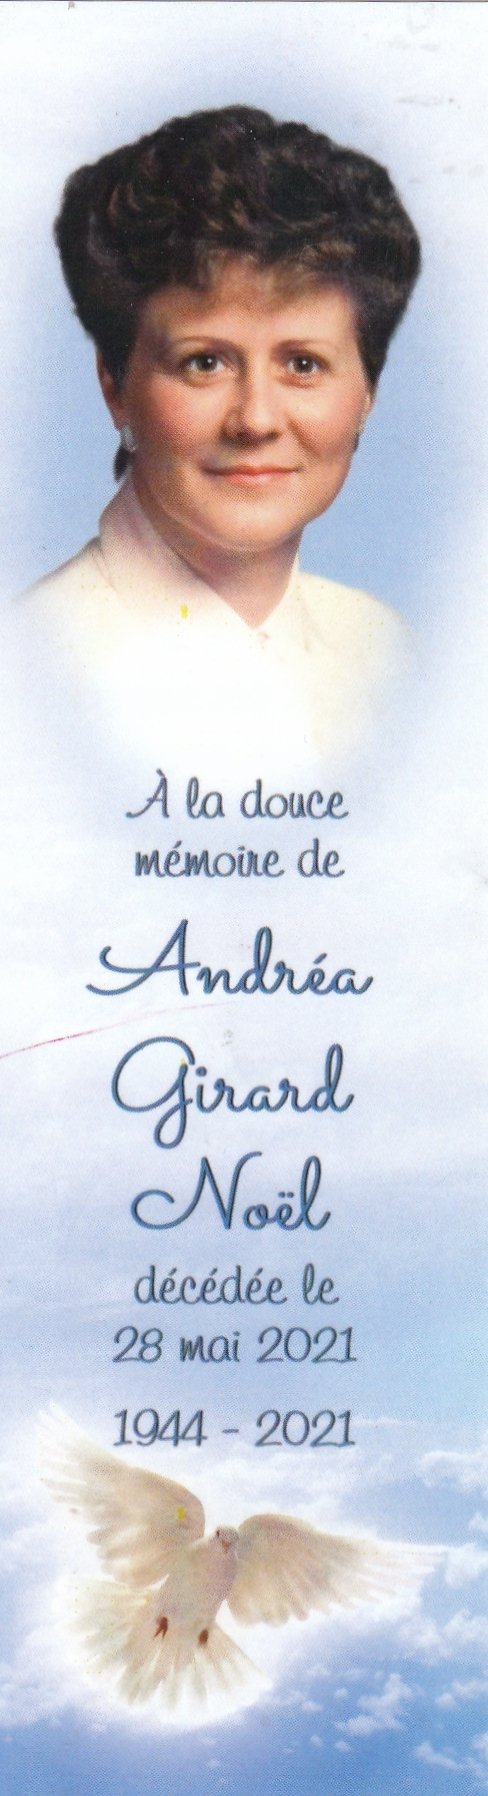 À la douce
mémoire de
Andréa
Girard
Noël
décédée le
28 mai 2021
1944 - 2021